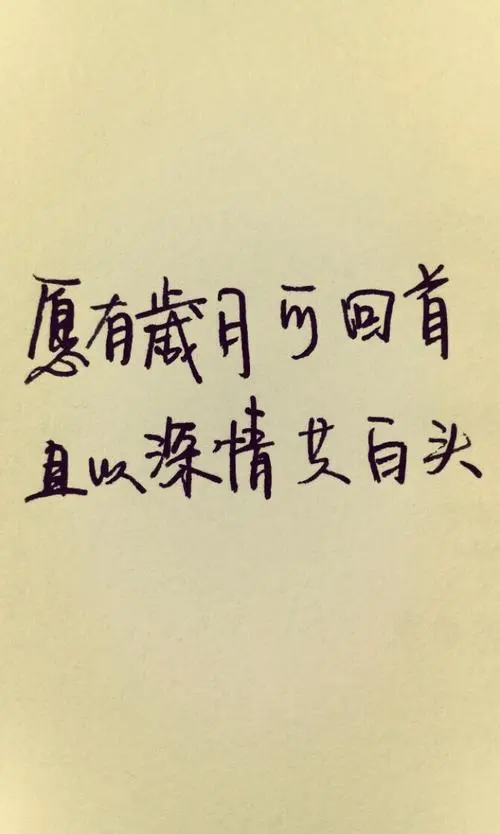 愿有歳月可回首
且以深情共白头